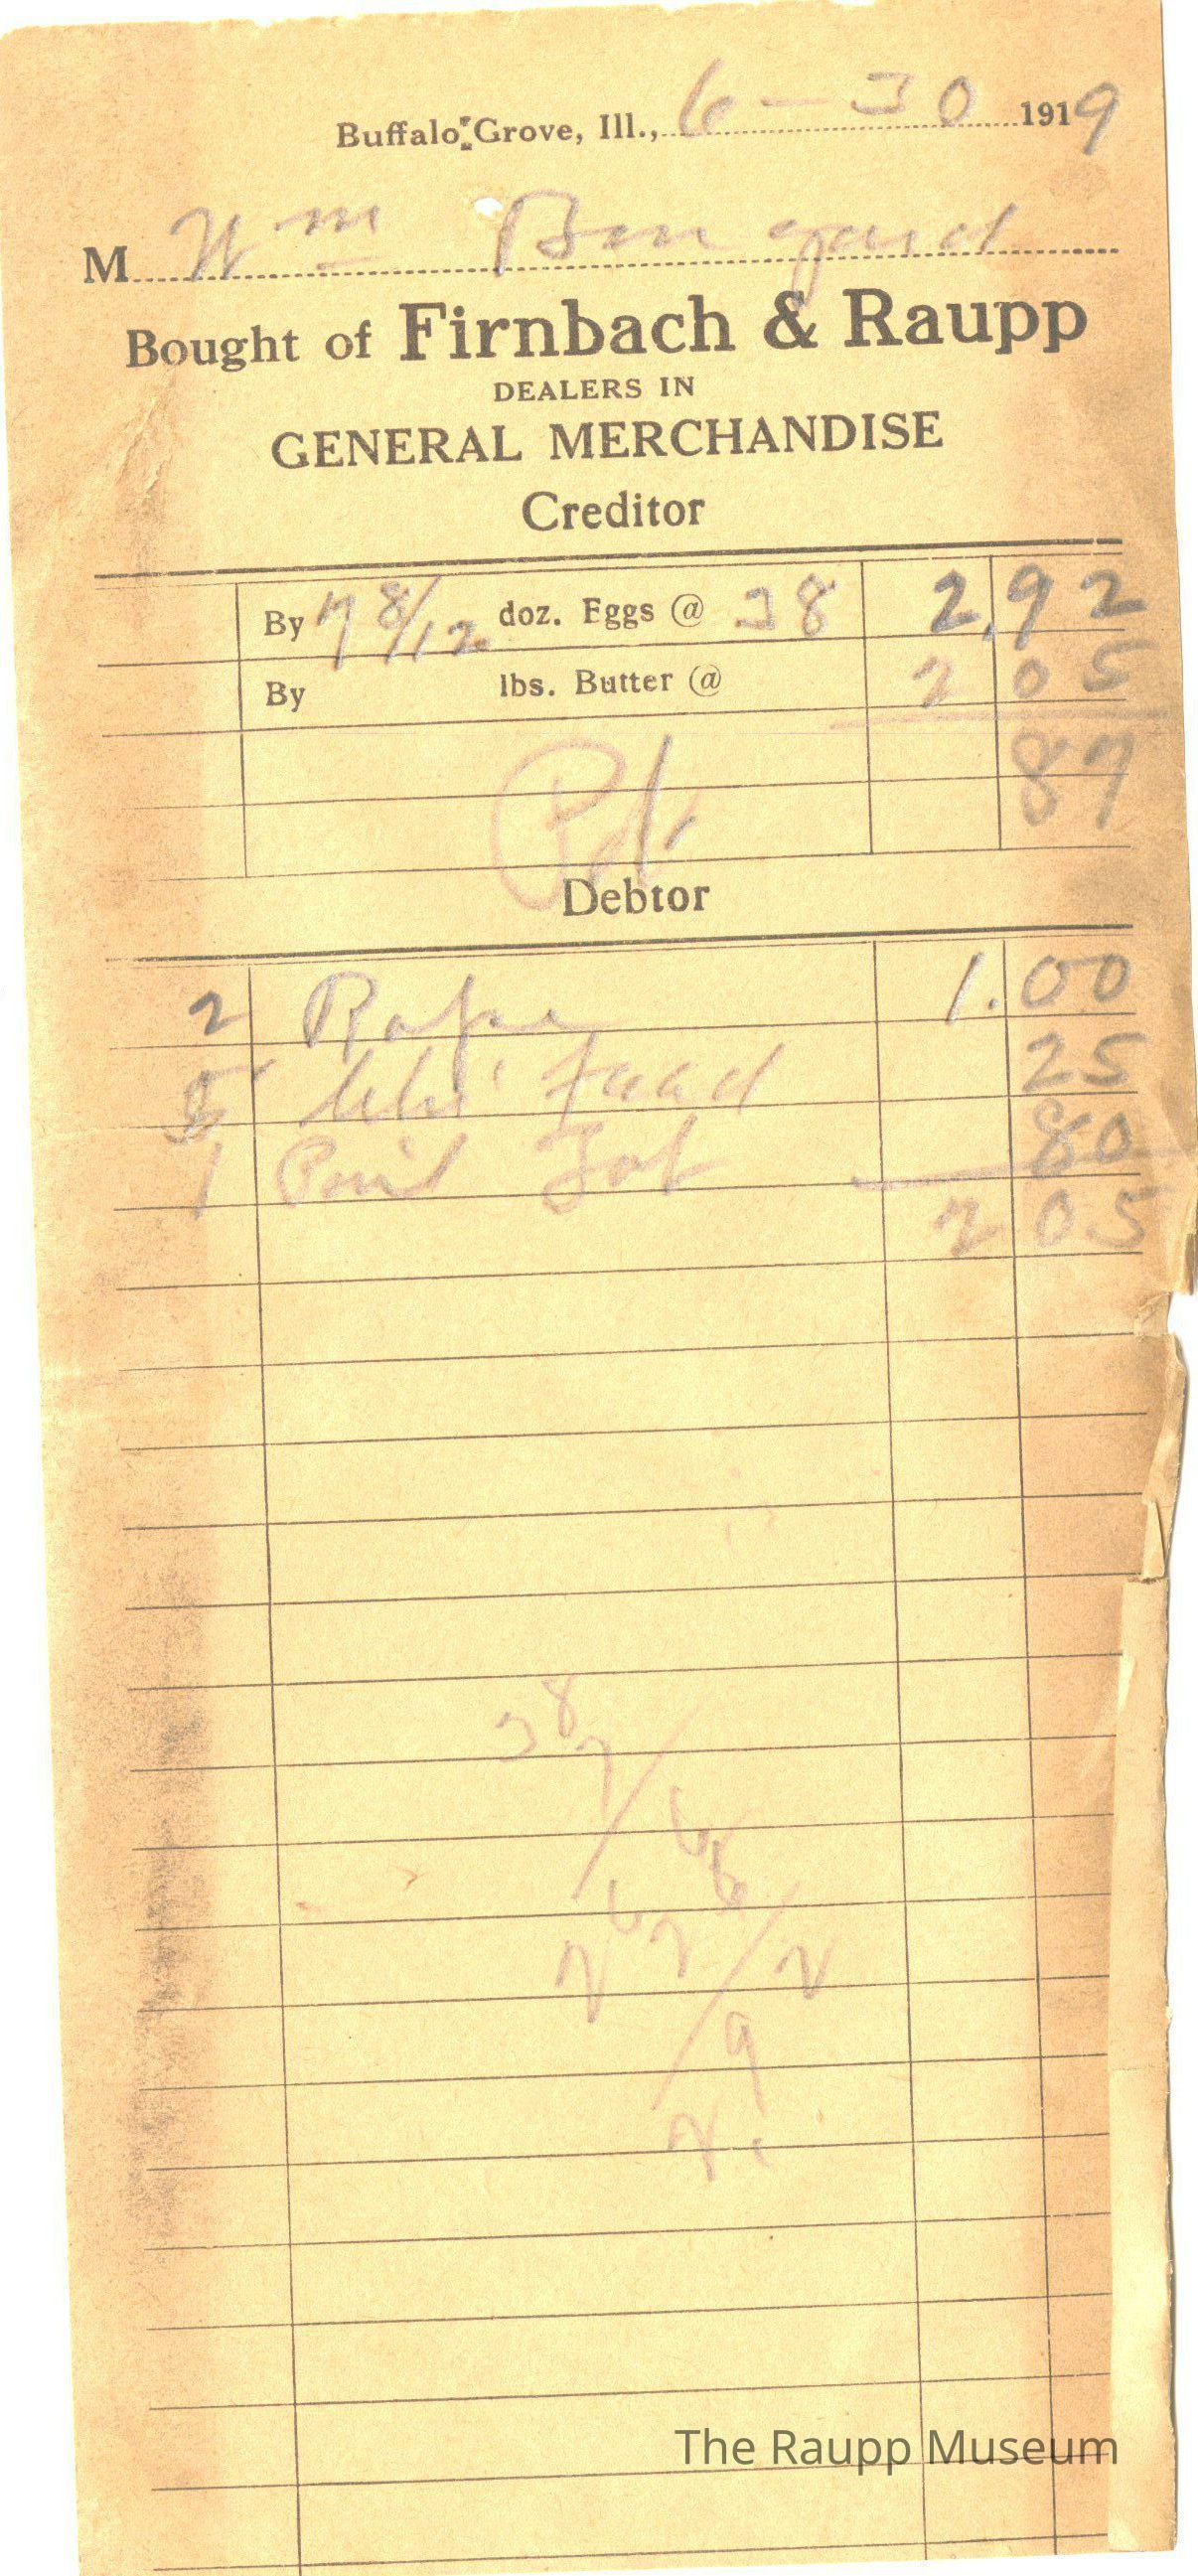 Buffalo Grove, Ill., 6 - 30 1919
M Wm Bongard
Bought of Firnbach & Raupp
DEALERS IN
GENERAL MERCHANDISE
Creditor
By 7 8/12 doz. Eggs @ 38 2.92
By lbs. Butter @ 2 05
87
Pd.
Debtor
2 Rope 1.00
5 Chi Feed 25
1 Pail 80
2 05
38
7
66
The Raupp Museum